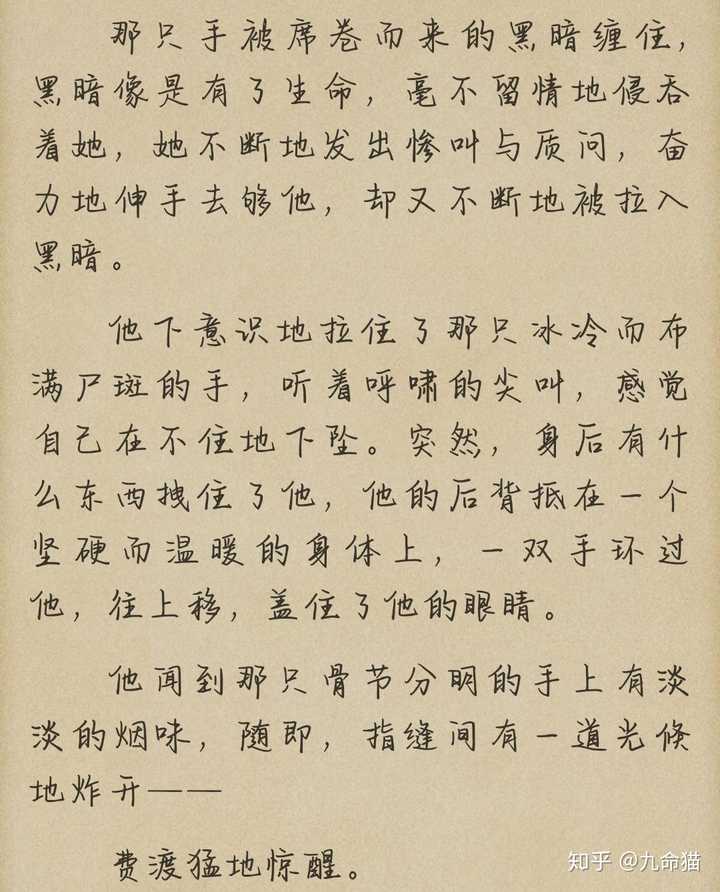 那只手被席卷而来的黑暗缠住，
黑暗像是有了生命，毫不留情地侵吞
着她，她不断地发出惨叫与质问，奋
力地伸手去够他，却又不断地被拉入
黑暗。
他下意识地拉住了那只冰冷而布
满尸斑的手，听着呼啸的尖叫，感觉
自己在不住地下坠。突然，身后有什
么东西拽住了他，他的后背抵在一个
坚硬而温暖的身体上，一双手环过
他，往上移，盖住了他的眼睛。
他闻到那只骨节分明的手上有淡
淡的烟味，随即，指缝间有一道光倏
地炸开——
费渡猛地惊醒。
知乎 @九命猫